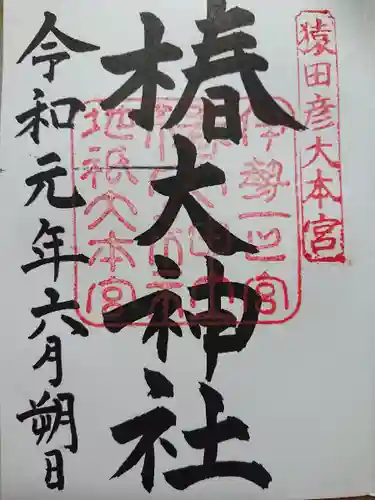 猿田彦大本宮
伊勢一之宮
地祇大本宮
椿大神社
令和元年六月朔日